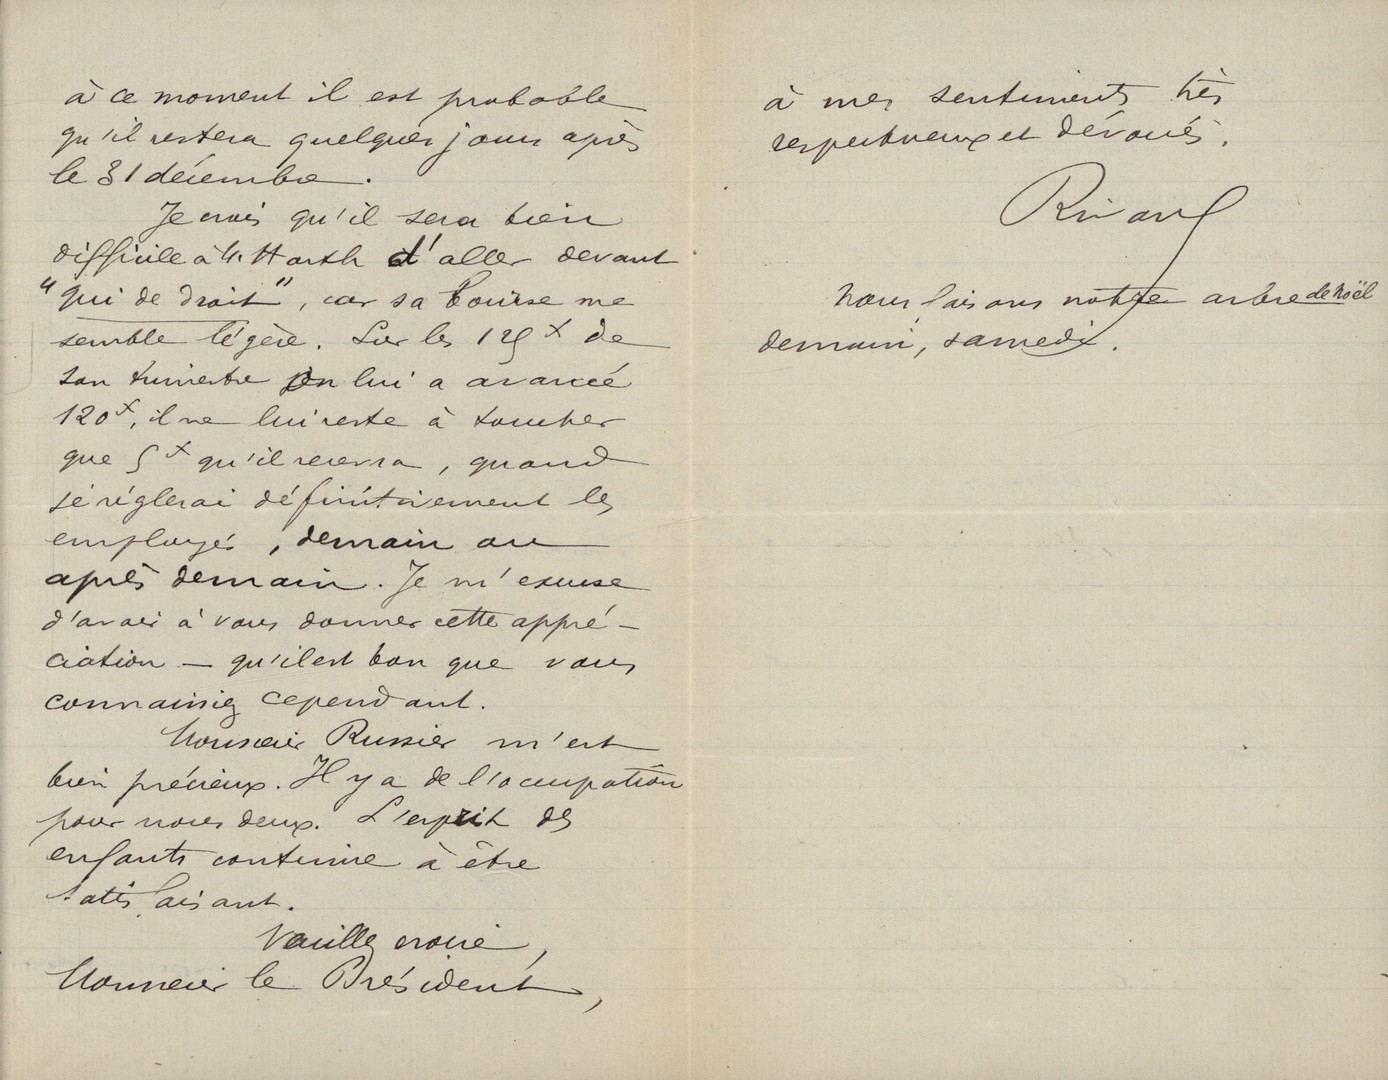 à ce moment il est probable
qu'il restera quelques jours après
le 31 décembre.
Je crois qu'il sera bien
difficile à M. Harth d'aller devant
"qui de droit", car sa bourse me
semble légère. Sur les 125 f de
son trimestre on lui a avancé
120 f, il ne lui reste à toucher
que 5 f qu'il recevra, quand
je règlerai définitivement les
employés, demain ou
après demain. Je m'excuse
d'avoir à vous donner cette appré-
ciation — qu'il est bon que vous
connaissiez cependant.
Monsieur Russier m'est
bien précieux. Il y a de l'occupation
pour nous deux. L'esprit des
enfants continue à être
satisfaisant.
Veuillez croire,
Monsieur le Président,
à mes sentiments très
respectueux et dévoués.
Nous faisons notre arbre de Noël
demain, samedi.